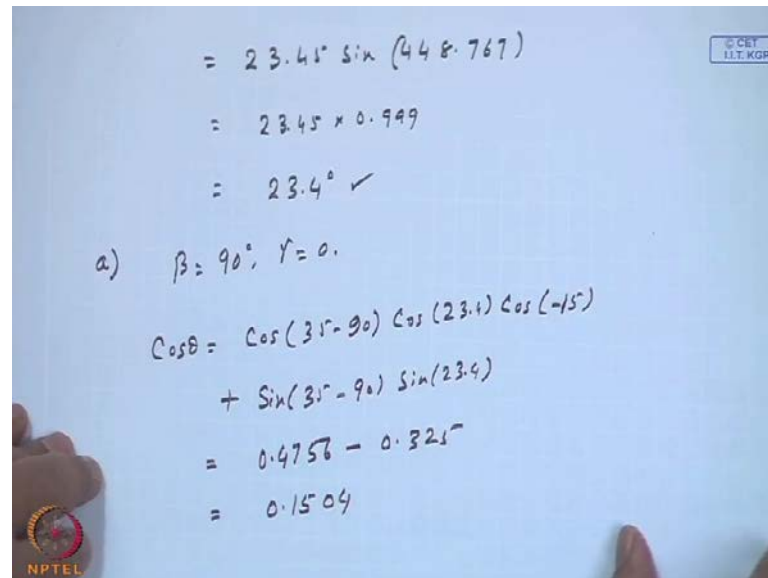 = 23.45 Sin (448.767)
© CET
I.I.T. KGP
= 23.45 × 0.999
= 23.4° ✓
a) β = 90°, γ = 0.
Cosθ = Cos(35-90) Cos(23.4) Cos(-15)
+ Sin(35-90) Sin(23.4)
= 0.4756 - 0.325
= 0.1504
NPTEL